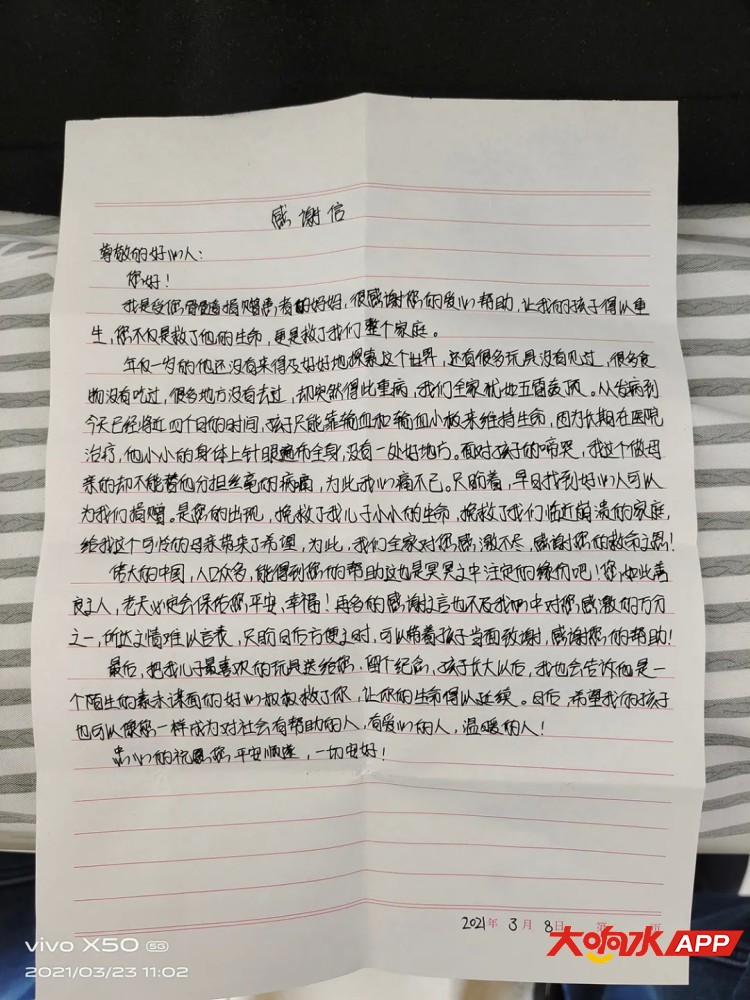 感谢信
尊敬的好心人：
您好！
我是受您骨髓捐赠患者的妈妈，很感谢您的爱心帮助，让我的孩子得以重
生，您不仅是救了他的生命，更是救了我们整个家庭。
年仅一岁的他还没有来得及好好地探索这个世界，还有很多玩具没有见过，很多食
物没有吃过，很多地方没有去过，却突然得此重病，我们全家犹如五雷轰顶。从发病到
今天已经将近四个月的时间，孩子只能靠输血和输血小板来维持生命，因为长期在医院
治疗，他小小的身体上针眼遍布全身，没有一处好地方。面对孩子的啼哭，我这个做母
亲的却不能替他分担丝毫的病痛，为此我心痛不已。只盼着，早日找到好心人可以
为我们捐赠。是您的出现，挽救了我儿子小小的生命，挽救了我们临近崩溃的家庭，
给我这个可怜的母亲带来了希望，为此，我们全家对您感激不尽，感谢您的救命之恩！
偌大的中国，人口众多，能得到您的帮助这也是冥冥之中注定的缘份吧！您如此善
良之人，老天必定会保佑您平安、幸福！再多的感谢之言也不及我心中对您感激的万分
之一，所以之情难以言表，只盼日后方便之时，可以带着孩子当面致谢，感谢您的帮助！
最后，把我儿子最喜欢的玩具送给您，留个纪念，孩子长大以后，我也会告诉他是一
个陌生的素未谋面的好心叔叔救了你，让你的生命得以延续。日后，希望我的孩子
也可以像您一样成为对社会有帮助的人，有爱心的人，温暖的人！
忠心的祝愿您平安顺遂，一切安好！
2021年 3月 8日 第 页
vivo X50 5G
2021/03/23 11:02
大响水APP